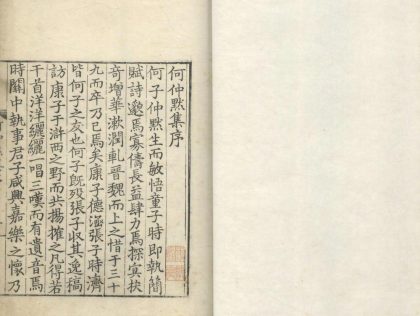 何仲默集序
何子仲默生而敏悟童子時即執簡
賦詩邈焉寡儔長益肆力焉探寅抉
奇增華漱潤軋晉魏而上之惜于三十
九而卒乃已焉矣康子德涵張子時濟
皆何子之友也何子既殁張子收其逸稿
訪康子于滸西之野而共揚搉之凡得若
干首洋洋纚纚一唱三嘆而有遺音焉
時關中執事君子咸興嘉樂之懷乃